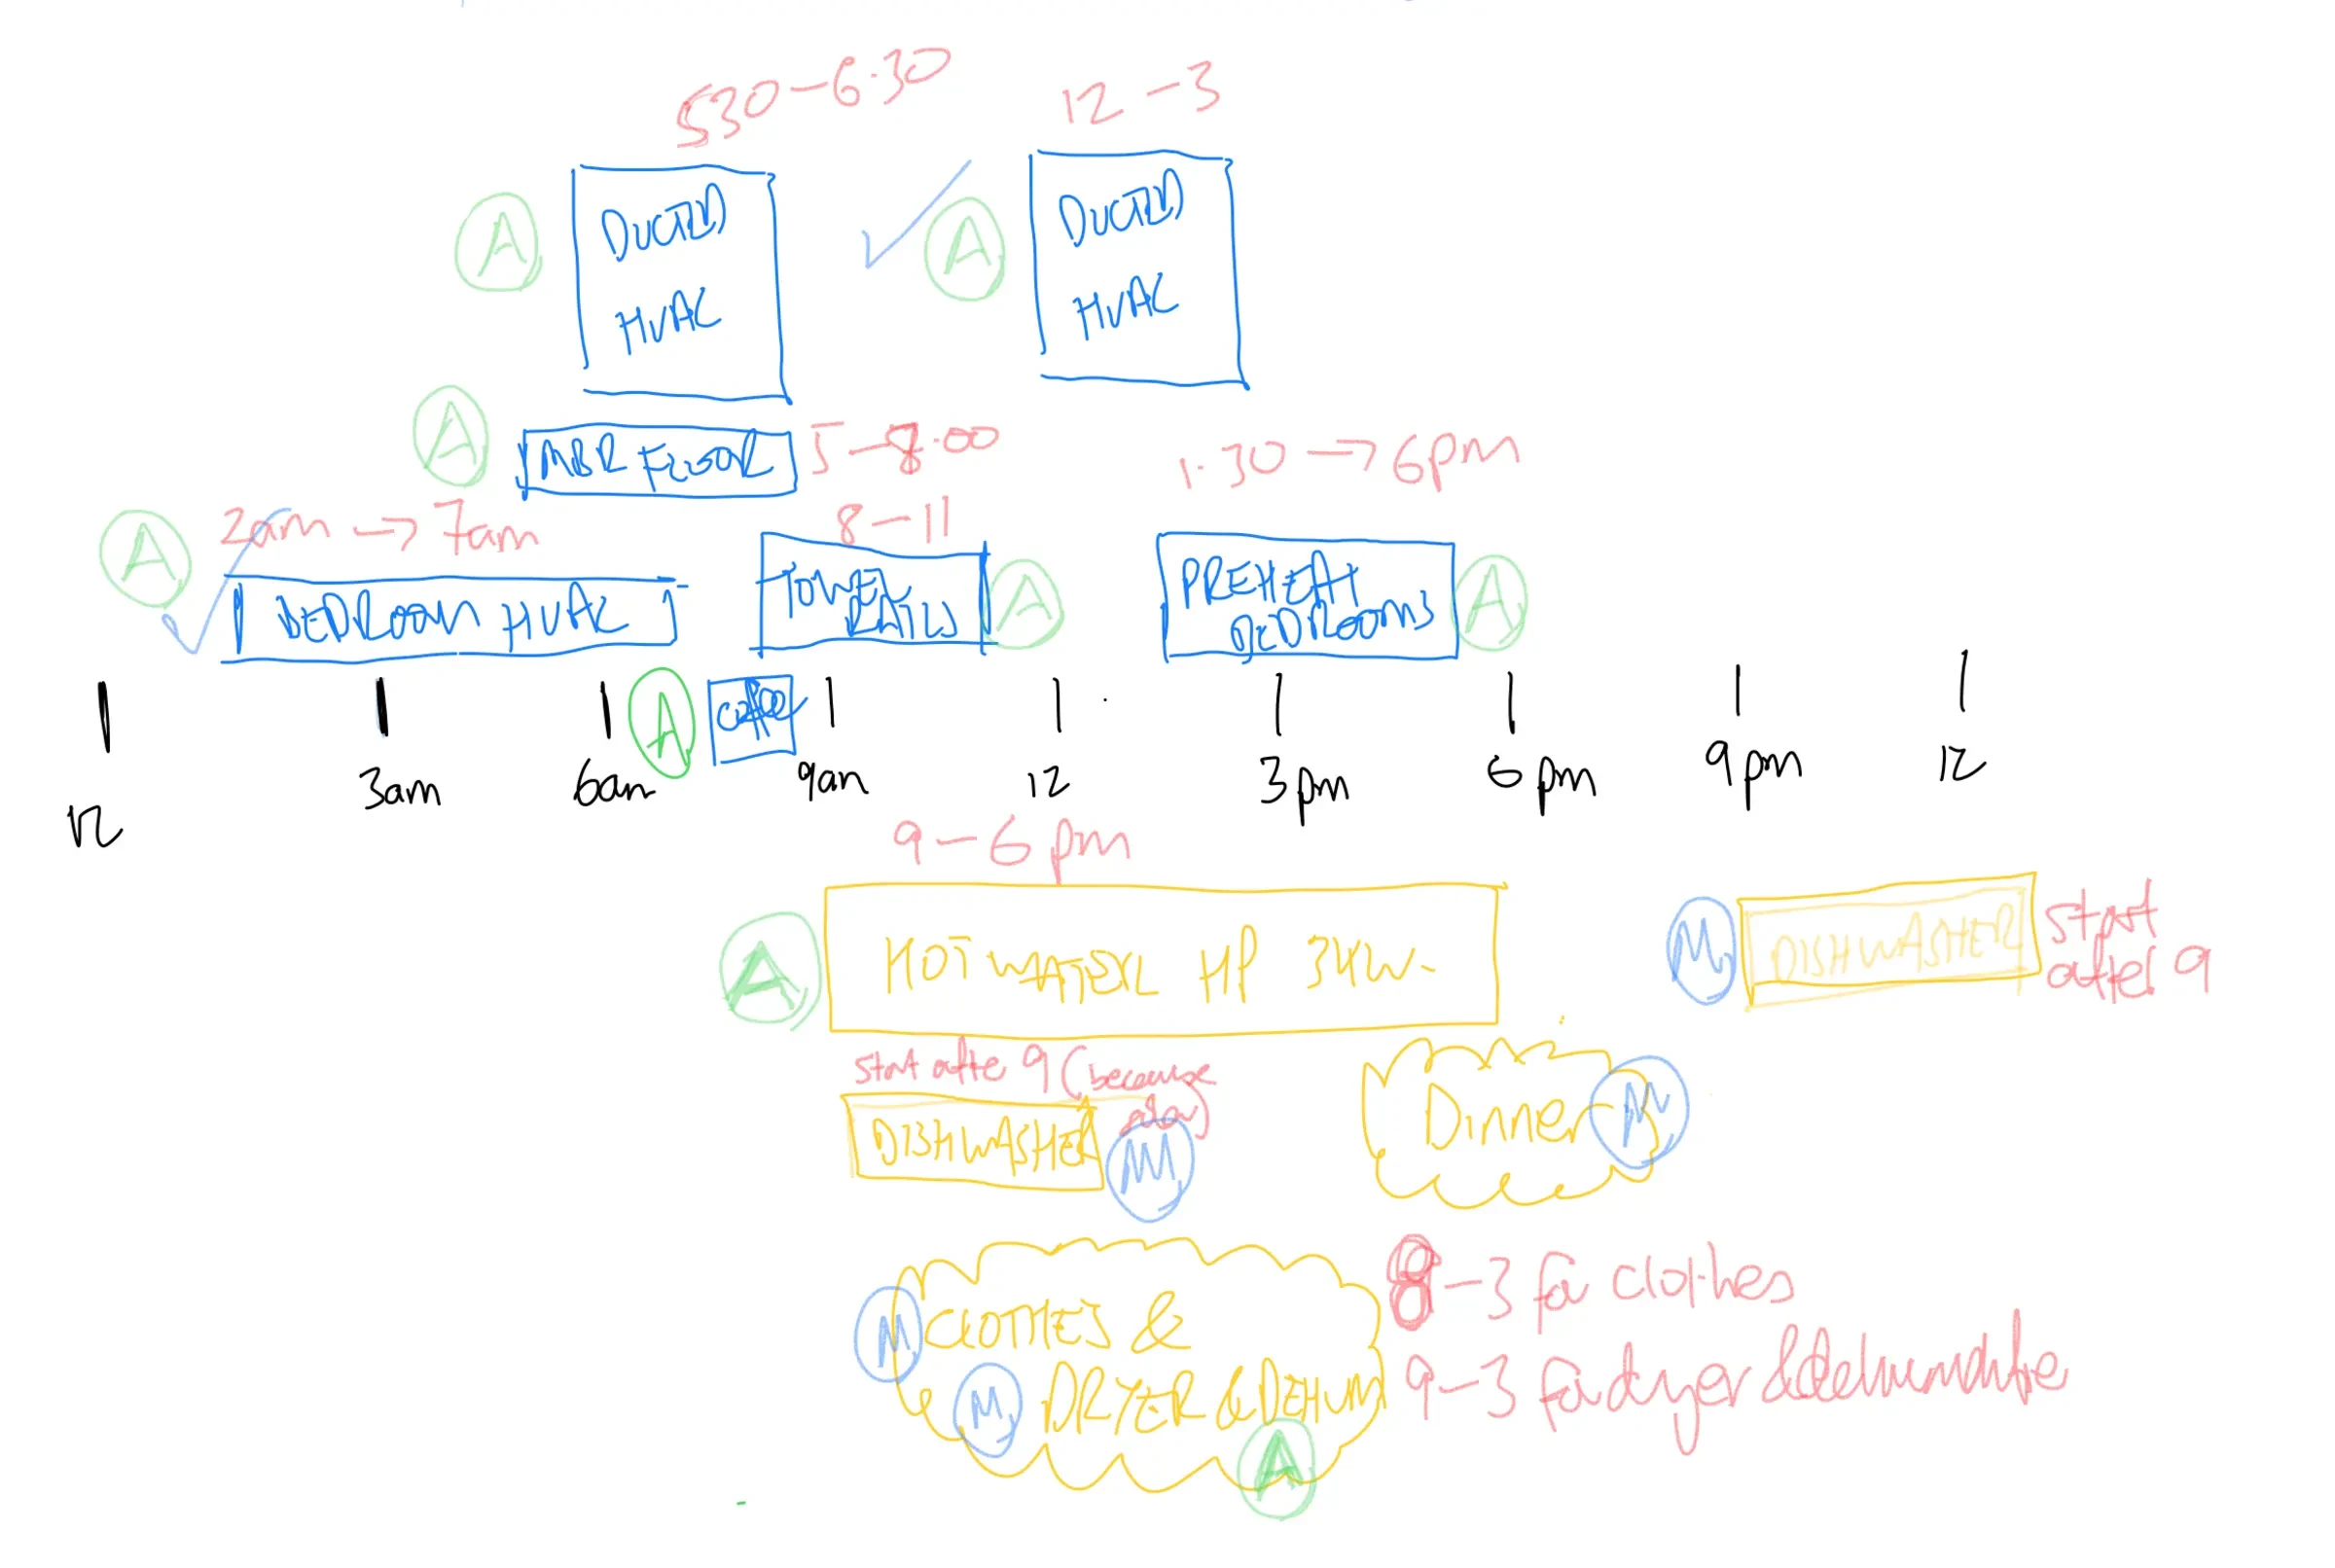 530-6.30
12-3
A
DUCTED
HVAC
A
DUCTED
HVAC
A
MBR FLOOR
5-8.00
1.30→6pm
A
2am→7am
8-11
BEDROOM HVAC
TOWEL
RAILS
A
PREHEAT
BEDROOMS
A
A
coffee
12
3am
6am
9am
12
3pm
6pm
9pm
12
9-6pm
A
HOT WATER HP 3KW
M
DISHWASHER
start
after 9
start after 9 (because
DISHWASHER
M
Dinner
M
M
CLOTHES &
M
DRYER & DEHUM
A
8-3 for clothes
9-3 for dryer &